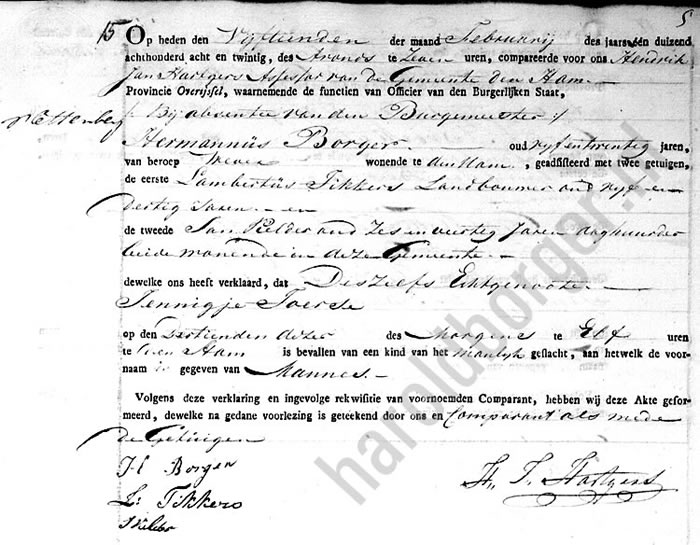 15 5
Op heden den Vyftienden der maand Februarij des jaars een duizend
achthonderd acht en twintig, des Avonds te Zeven uren, compareerde voor ons Hendrik
Jan Hartgers Assessor van de Gemeente den Ham
Provincie Overijssel, waarnemende de functien van Officier van den Burgerlijken Staat,
Bij absentie van den Burgemeester
Hermannüs Borger oud vyf en twintig jaren,
van beroep Wever wonende te den Ham, geadsisteerd met twee getuigen,
de eerste Lambertüs Tikkers Landbouwer oud vyf en
dertig Jaren en
de tweede Jan Kelder oud Zes en veertig Jaren daghuurder
beide wonende in deze Gemeente
dewelke ons heeft verklaard, dat Deszelfs Echtgenoote
Jennigje Toerse
op den dertienden dezer des Morgens te Elf uren
te den Ham is bevallen van een kind van het Manlyk geslacht, aan hetwelk de voor-
naam is gegeven van Mannes.
Volgens deze verklaring en ingevolge rekwisitie van voornoemden Comparant, hebben wij deze Akte gefor-
meerd, dewelke na gedane voorlezing is geteekend door ons en Comparant als mede
de Getuigen
H Borger
L: Tikkers
J Kelder
H. J. Hartgers
haroldborger.nl